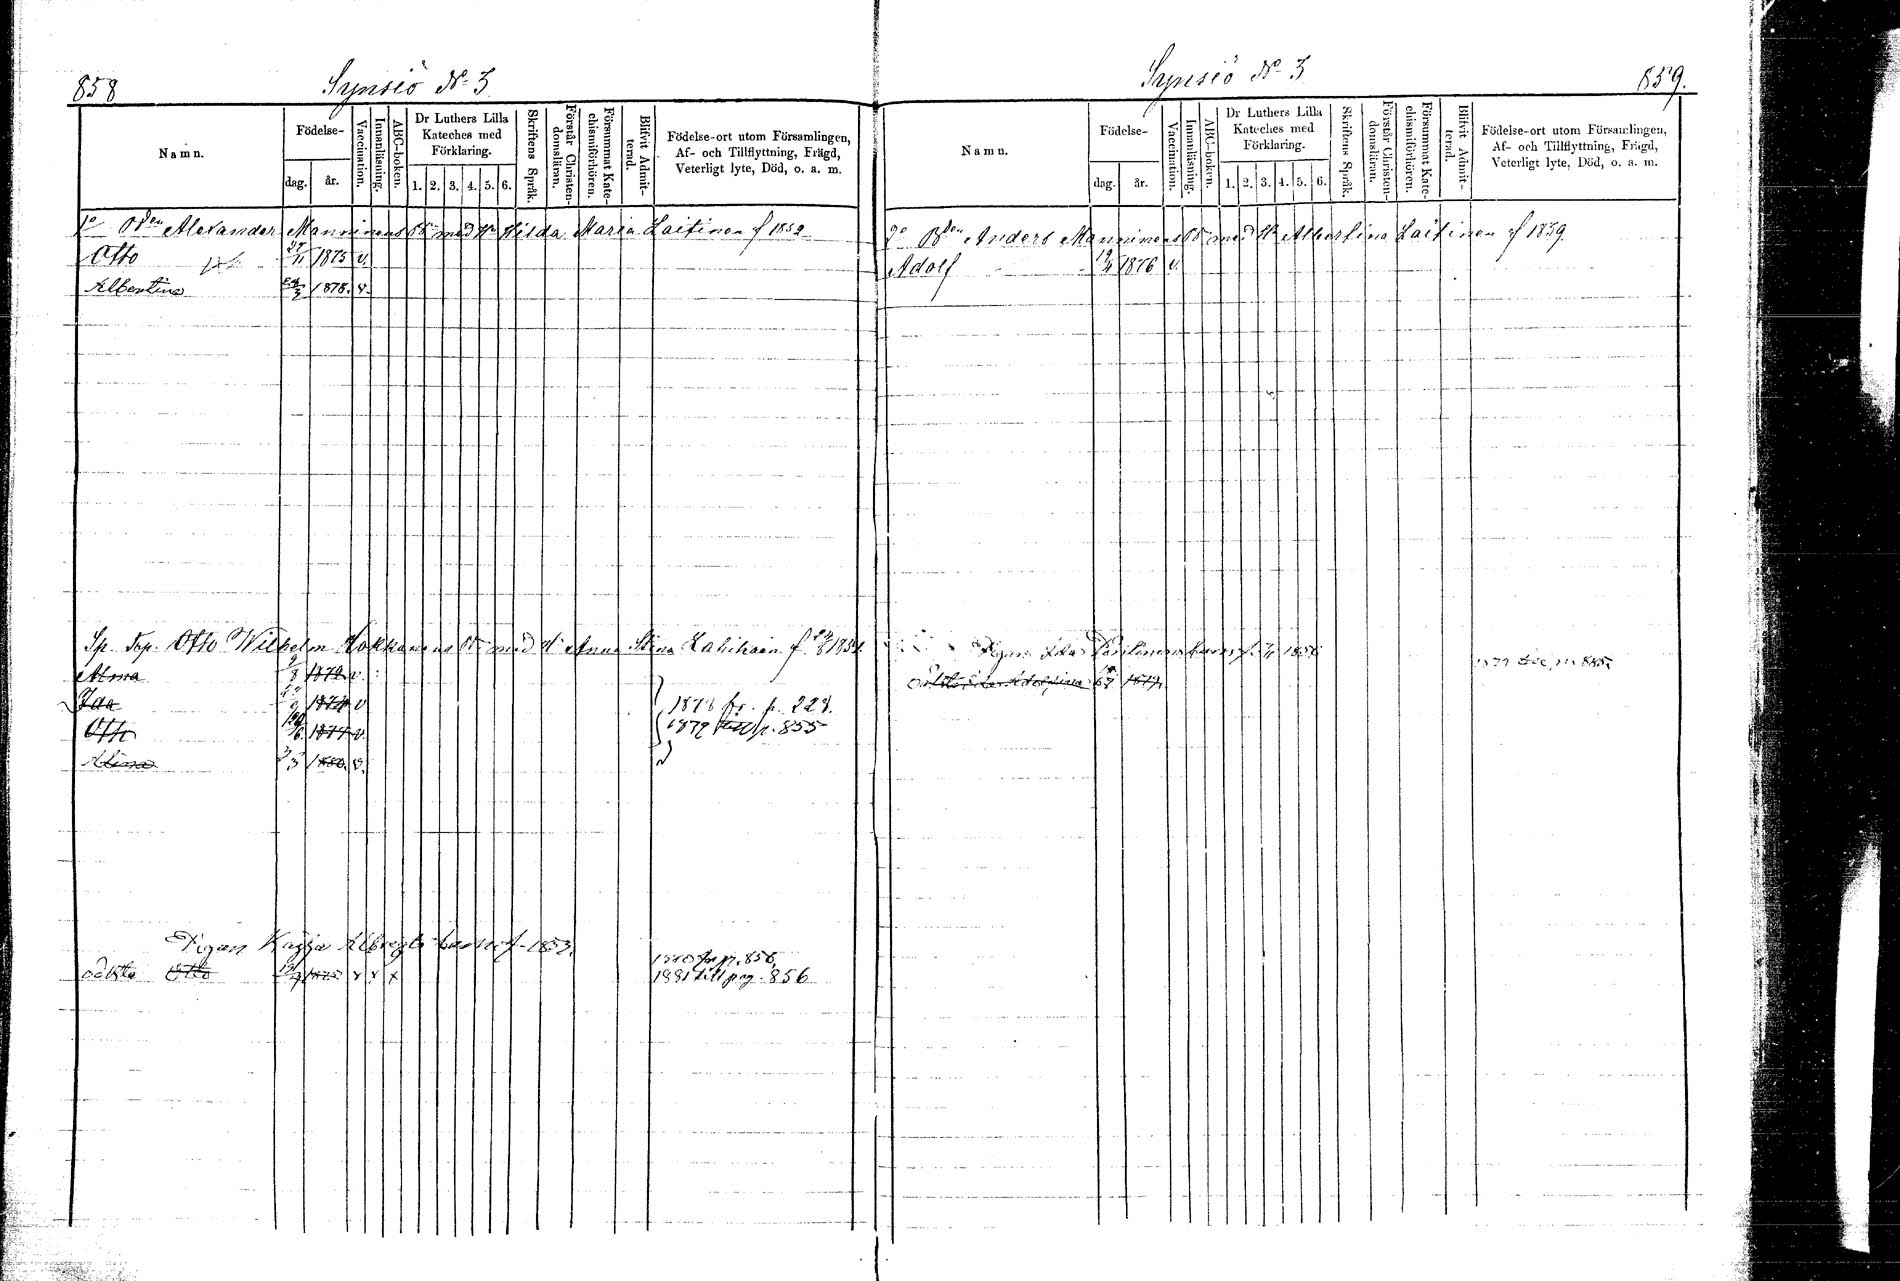 858
Synsiö No 3
Namn.
Födelse-
dag.
år.
Vaccination.
Innanläsning.
ABC-boken.
Dr Luthers Lilla
Kateches med
Förklaring.
1. 2. 3. 4. 5. 6.
Skriftens Språk.
Förstår Christen-
domsläran.
Försummat Kate-
chismiförhören.
Blifvit Admit-
terad.
Födelse-ort utom Församlingen,
Af- och Tillflyttning, Frägd,
Veterligt lyte, Död, o. a. m.
1o Bden Alexander Manninens med Hu Hilda Maria Laitinen f 1852
Otto 27/11 1875 v.
Albertina 1878. v.
Sp. Trp. Otto Wilhelm Hokkanens med Hu Anna Stina f.
Alma 9/8 1872 v.
Ida 1874 v
Otto 1877 v.
1878 fr. p. 228.
1879 till p. 855
Alina 3/3 1880. v.
Pigan Kajsa barn f. 1853.
fr p. 856,
oäkta Otto v x x 1881 till pag. 856
Synsiö No 3
859.
Namn.
Födelse-
dag.
år.
Vaccination.
Innanläsning.
ABC-boken.
Dr Luthers Lilla
Kateches med
Förklaring.
1. 2. 3. 4. 5. 6.
Skriftens Språk.
Förstår Christen-
domsläran.
Försummat Kate-
chismiförhören.
Blifvit Admit-
terad.
Födelse-ort utom Församlingen,
Af- och Tillflyttning, Frägd,
Veterligt lyte, Död, o. a. m.
2o Bden Anders Manninens med Hu Albertina Laitinen f 1839.
Adolf 1876 v.
Pigan Ida barn f. 1856
1879 p. 885.
Oäkta Ida Adolfina 1879.